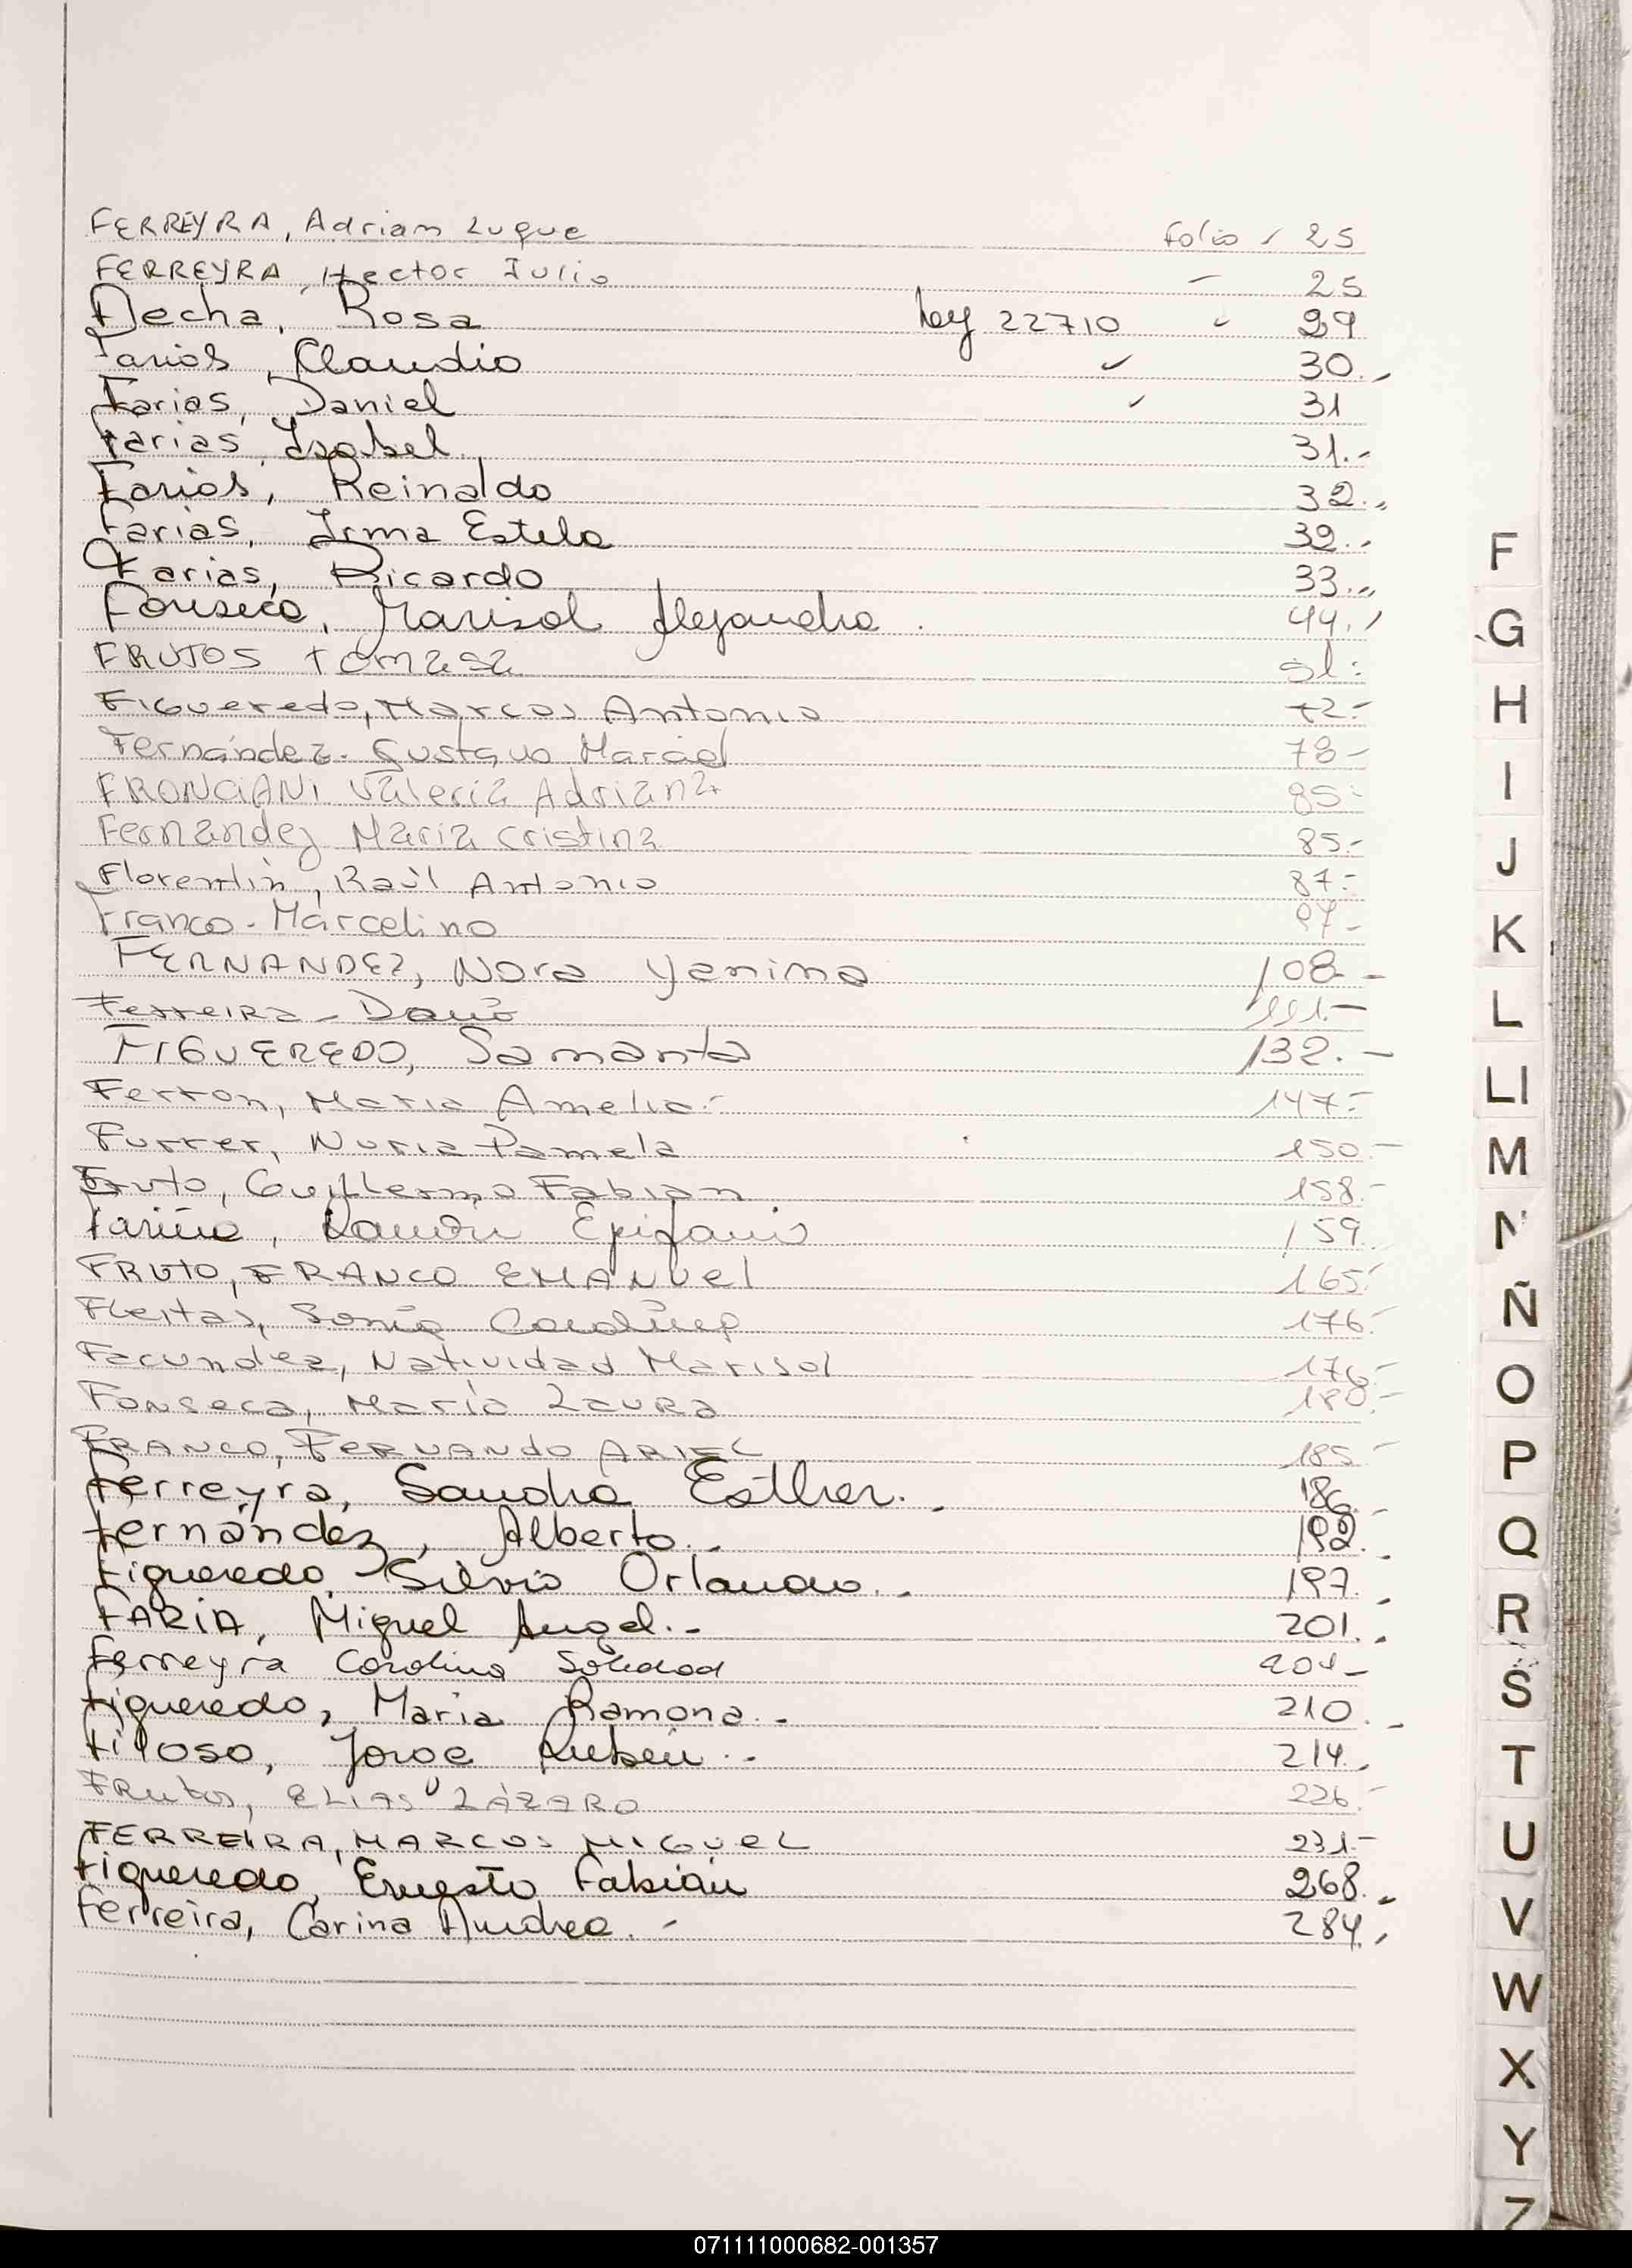 FERREYRA, Adrian Luque Folio 25
FERREYRA, Hector Julio 25
Flecha, Rosa Ley 22710 29
Farias, Claudio 30.-
Farias, Daniel 31
Farias, Isabel 31.-
Farias, Reinaldo 32.-
Farias, Irma Estela 32.-
Farias, Ricardo 33.-
Fonseca, Marisol Alejandra 44.-
FRUTOS Tomasa
Figueredo, Marcos Antonio 72.-
Fernández - Gustavo Marcel 78-
FRONCIANI Valeria Adriana 85-
Fernandez Maria Cristina 85.-
Florentin, Raúl Antonio 87.-
Franco - Marcelino 97-
FERNANDEZ, Nora Yanina 108-
Ferreira - 111.-
FIGUEREDO, Samanta 132.-
Ferron, Maria Amelia.- 147.-
Furrer, Nuria Pamela 150.-
Fruto, Guillermo Fabian 158.-
Fariña, Ramón Epifanio 159
FRUTO, FRANCO EMANUEL 165.-
Fleitas, Sonia 176.-
Facundez, Natividad Marisol 176.-
Fonseca, María Laura 180.-
FRANCO, FERNANDO ARIEL 185-
Ferreyra, Sandra Esther.- 186.-
Fernández, Alberto.- 192.-
Figueredo, Silvio Orlando.- 197.-
FARIA, Miguel Angel.- 201.-
Ferreyra Carolina Soledad 204-
Figueredo, Maria Ramona.- 210.-
Filoso, Jorge Rubén.- 214.-
Frutos, ELIAS LÁZARO 226.-
FERREIRA, MARCOS MIGUEL 231.-
Figueredo, Ernesto Fabián 268.-
Ferreira, Carina Andrea.- 284.-
F
G
H
I
J
K
L
Ll
M
N
Ñ
O
P
Q
R
S
T
U
V
W
X
Y
Z
071111000682-001357